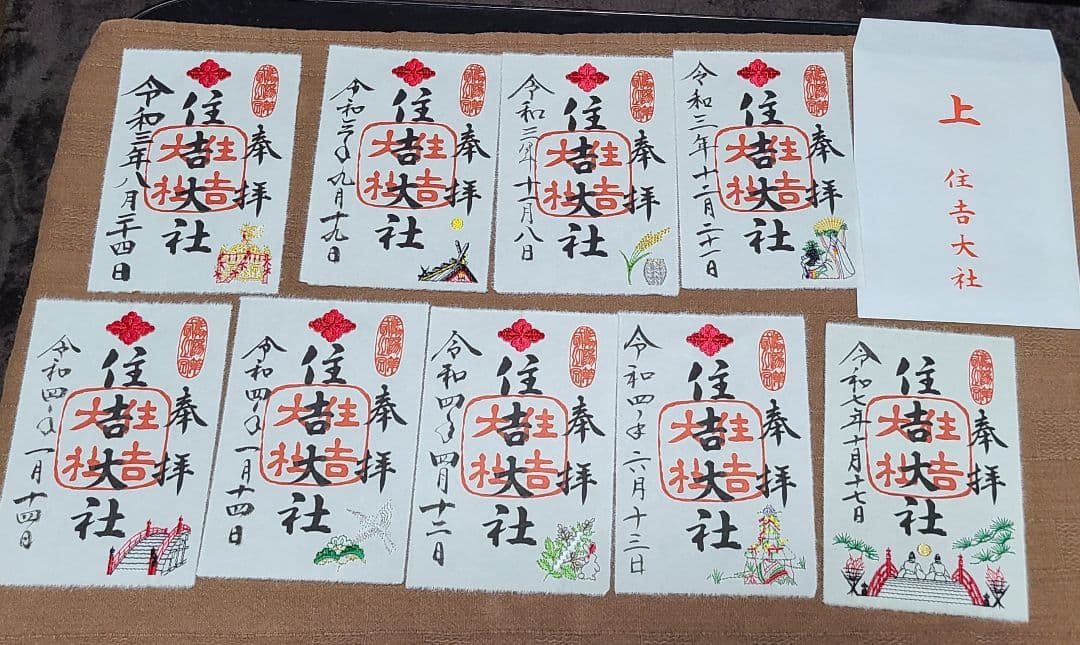 奉拝
住吉大社
住吉大社
令和三年八月二十四日
奉拝
住吉大社
住吉大社
令和三年九月十九日
奉拝
住吉大社
住吉大社
令和三年十一月八日
奉拝
住吉大社
住吉大社
令和三年十二月二十一日
上
住吉大社
奉拝
住吉大社
住吉大社
令和四年一月十四日
奉拝
住吉大社
住吉大社
令和四年一月十四日
奉拝
住吉大社
住吉大社
令和四年四月十二日
奉拝
住吉大社
住吉大社
令和四年六月十三日
奉拝
住吉大社
住吉大社
令和七年十月十七日